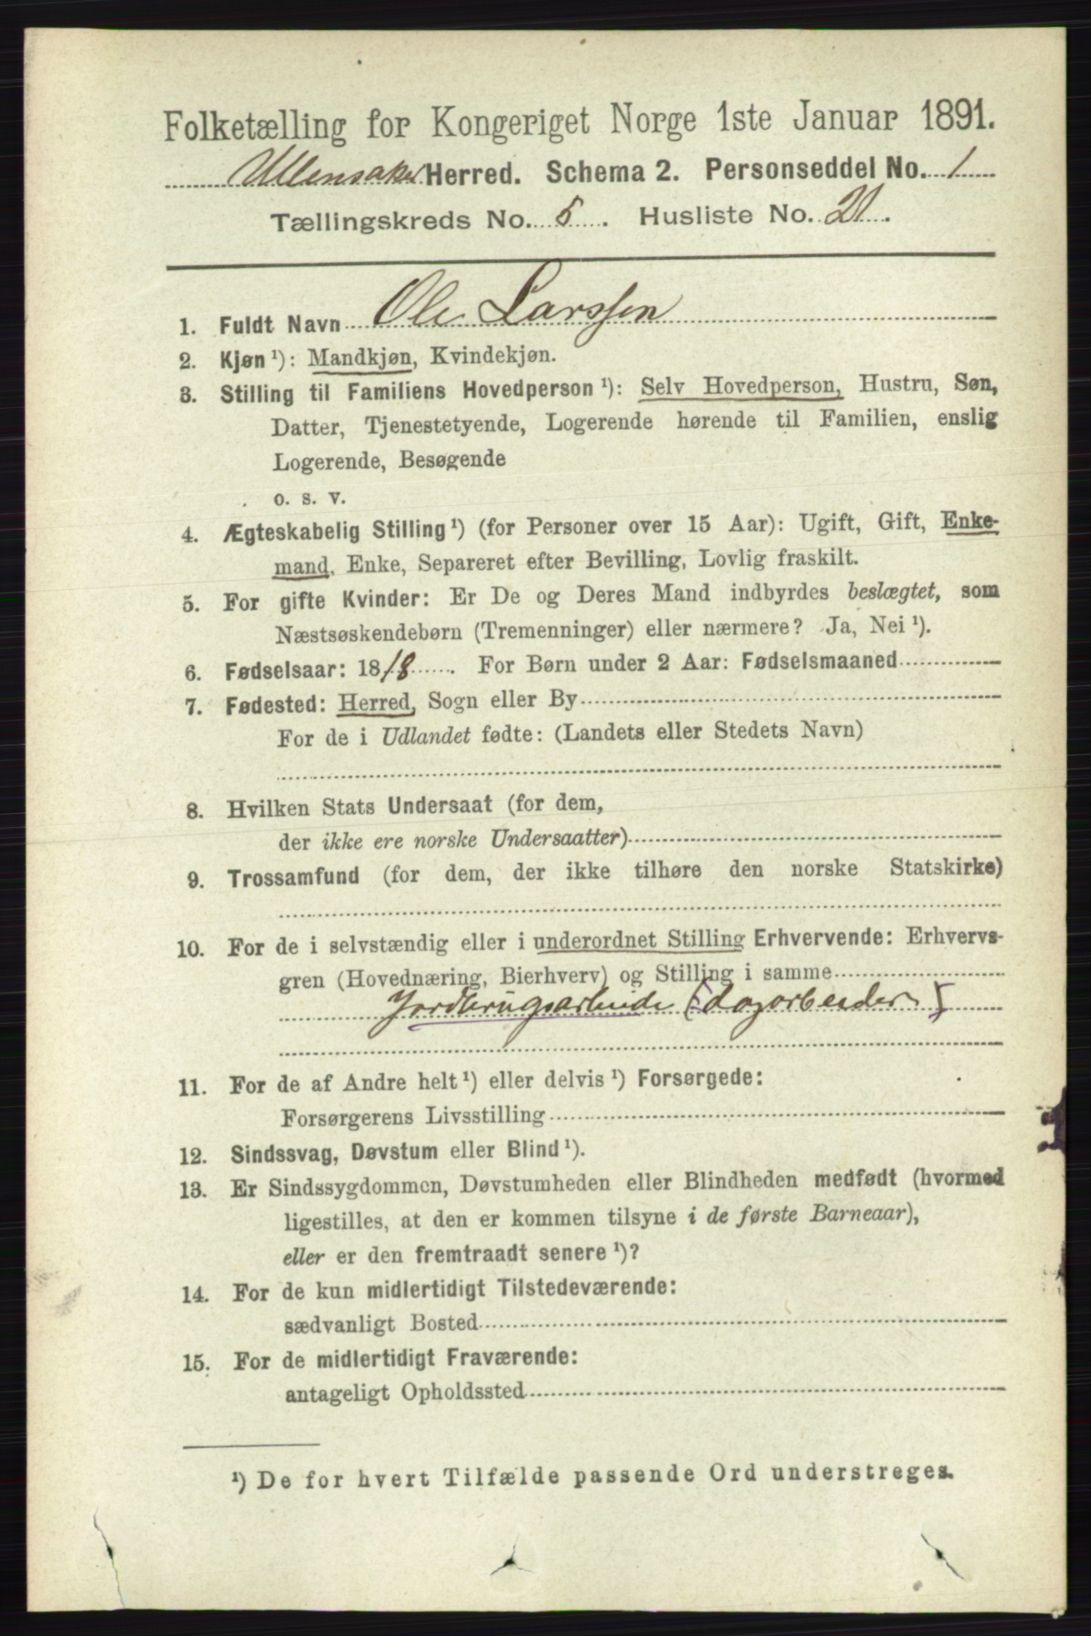 Folketælling for Kongeriget Norge 1ste Januar 1891.
Ullensaker Herred. Schema 2. Personseddel No. 1
Tællingskreds No. 5. Husliste No. 21.
1. Fuldt Navn Ole Larssen
2. Kjøn ¹): Mandkjøn, Kvindekjøn.
3. Stilling til Familiens Hovedperson ¹): Selv Hovedperson, Hustru, Søn,
Datter, Tjenestetyende, Logerende hørende til Familien, enslig
Logerende, Besøgende
o. s. v.
4. Ægteskabelig Stilling ¹) (for Personer over 15 Aar): Ugift, Gift, Enke-
mand, Enke, Separeret efter Bevilling, Lovlig fraskilt.
5. For gifte Kvinder: Er De og Deres Mand indbyrdes beslægtet, som
Næstsøskendebørn (Tremenninger) eller nærmere? Ja, Nei ¹).
6. Fødselsaar: 1818. For Børn under 2 Aar: Fødselsmaaned
7. Fødested: Herred, Sogn eller By
For de i Udlandet fødte: (Landets eller Stedets Navn)
8. Hvilken Stats Undersaat (for dem,
der ikke ere norske Undersaatter)
9. Trossamfund (for dem, der ikke tilhøre den norske Statskirke)
10. For de i selvstændig eller i underordnet Stilling Erhvervende: Erhvervs-
gren (Hovednæring, Bierhverv) og Stilling i samme
Jordbrugsarbeide (dagarbeider)
11. For de af Andre helt ¹) eller delvis ¹) Forsørgede:
Forsørgerens Livsstilling
12. Sindssvag, Døvstum eller Blind ¹).
13. Er Sindssygdommen, Døvstumheden eller Blindheden medfødt (hvormed
ligestilles, at den er kommen tilsyne i de første Barneaar),
eller er den fremtraadt senere ¹)?
14. For de kun midlertidigt Tilstedeværende:
sædvanligt Bosted
15. For de midlertidigt Fraværende:
antageligt Opholdssted
¹) De for hvert Tilfælde passende Ord understreges.